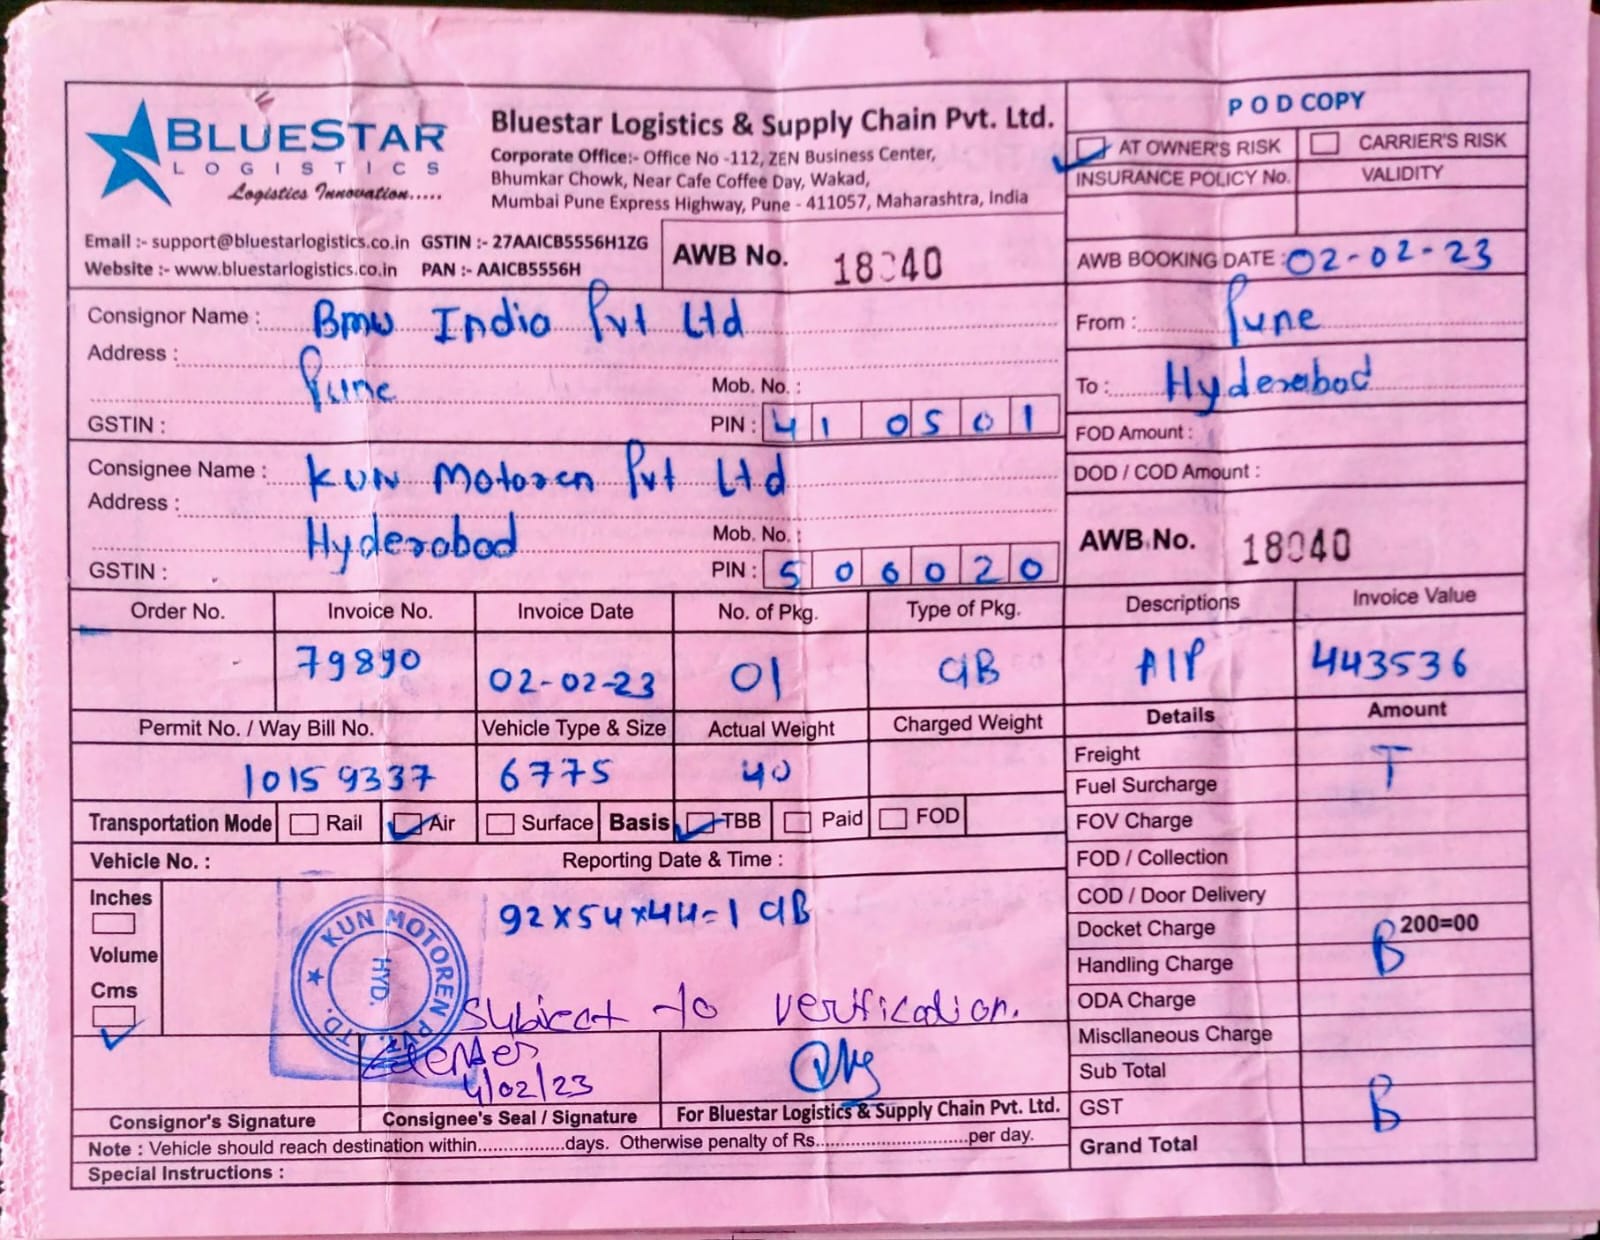 BLUESTAR
LOGISTICS
Logistics Innovation.....
Bluestar Logistics & Supply Chain Pvt. Ltd.
Corporate Office:- Office No -112, ZEN Business Center,
Bhumkar Chowk, Near Cafe Coffee Day, Wakad,
Mumbai Pune Express Highway, Pune - 411057, Maharashtra, India
P O D COPY
AT OWNER'S RISK CARRIER'S RISK
INSURANCE POLICY No. VALIDITY
Email :- support@bluestarlogistics.co.in GSTIN :- 27AAICB5556H1ZG
Website :- www.bluestarlogistics.co.in PAN :- AAICB5556H
AWB No.
AWB BOOKING DATE : 02-02-23
Consignor Name : Bmw India Pvt Ltd
Address :
Pune Mob. No. :
GSTIN : PIN : 410501
From : Pune
To : Hyderabad
FOD Amount :
DOD / COD Amount :
Consignee Name : KUN Motoren Pvt Ltd
Address :
Hyderabad Mob. No. :
GSTIN : PIN : 506020
AWB No.
Order No. Invoice No. Invoice Date No. of Pkg. Type of Pkg. Descriptions Invoice Value
79890 02-02-23 01 CIB AIP 443536
Permit No. / Way Bill No. Vehicle Type & Size Actual Weight Charged Weight Details Amount
10159337 6775 40
Freight T
Fuel Surcharge
Transportation Mode Rail Air Surface Basis TBB Paid FOD
FOV Charge
Vehicle No. : Reporting Date & Time :
FOD / Collection
COD / Door Delivery
Docket Charge 200=00
Handling Charge B
ODA Charge
Miscllaneous Charge
Sub Total
GST B
Grand Total
Inches
Volume
Cms
92x54x44=1 CIB
KUN MOTOREN PVT. LTD.
HYD.
Subject to verification.
4/02/23
Consignor's Signature Consignee's Seal / Signature For Bluestar Logistics & Supply Chain Pvt. Ltd.
Note : Vehicle should reach destination within.................days. Otherwise penalty of Rs..............................per day.
Special Instructions :